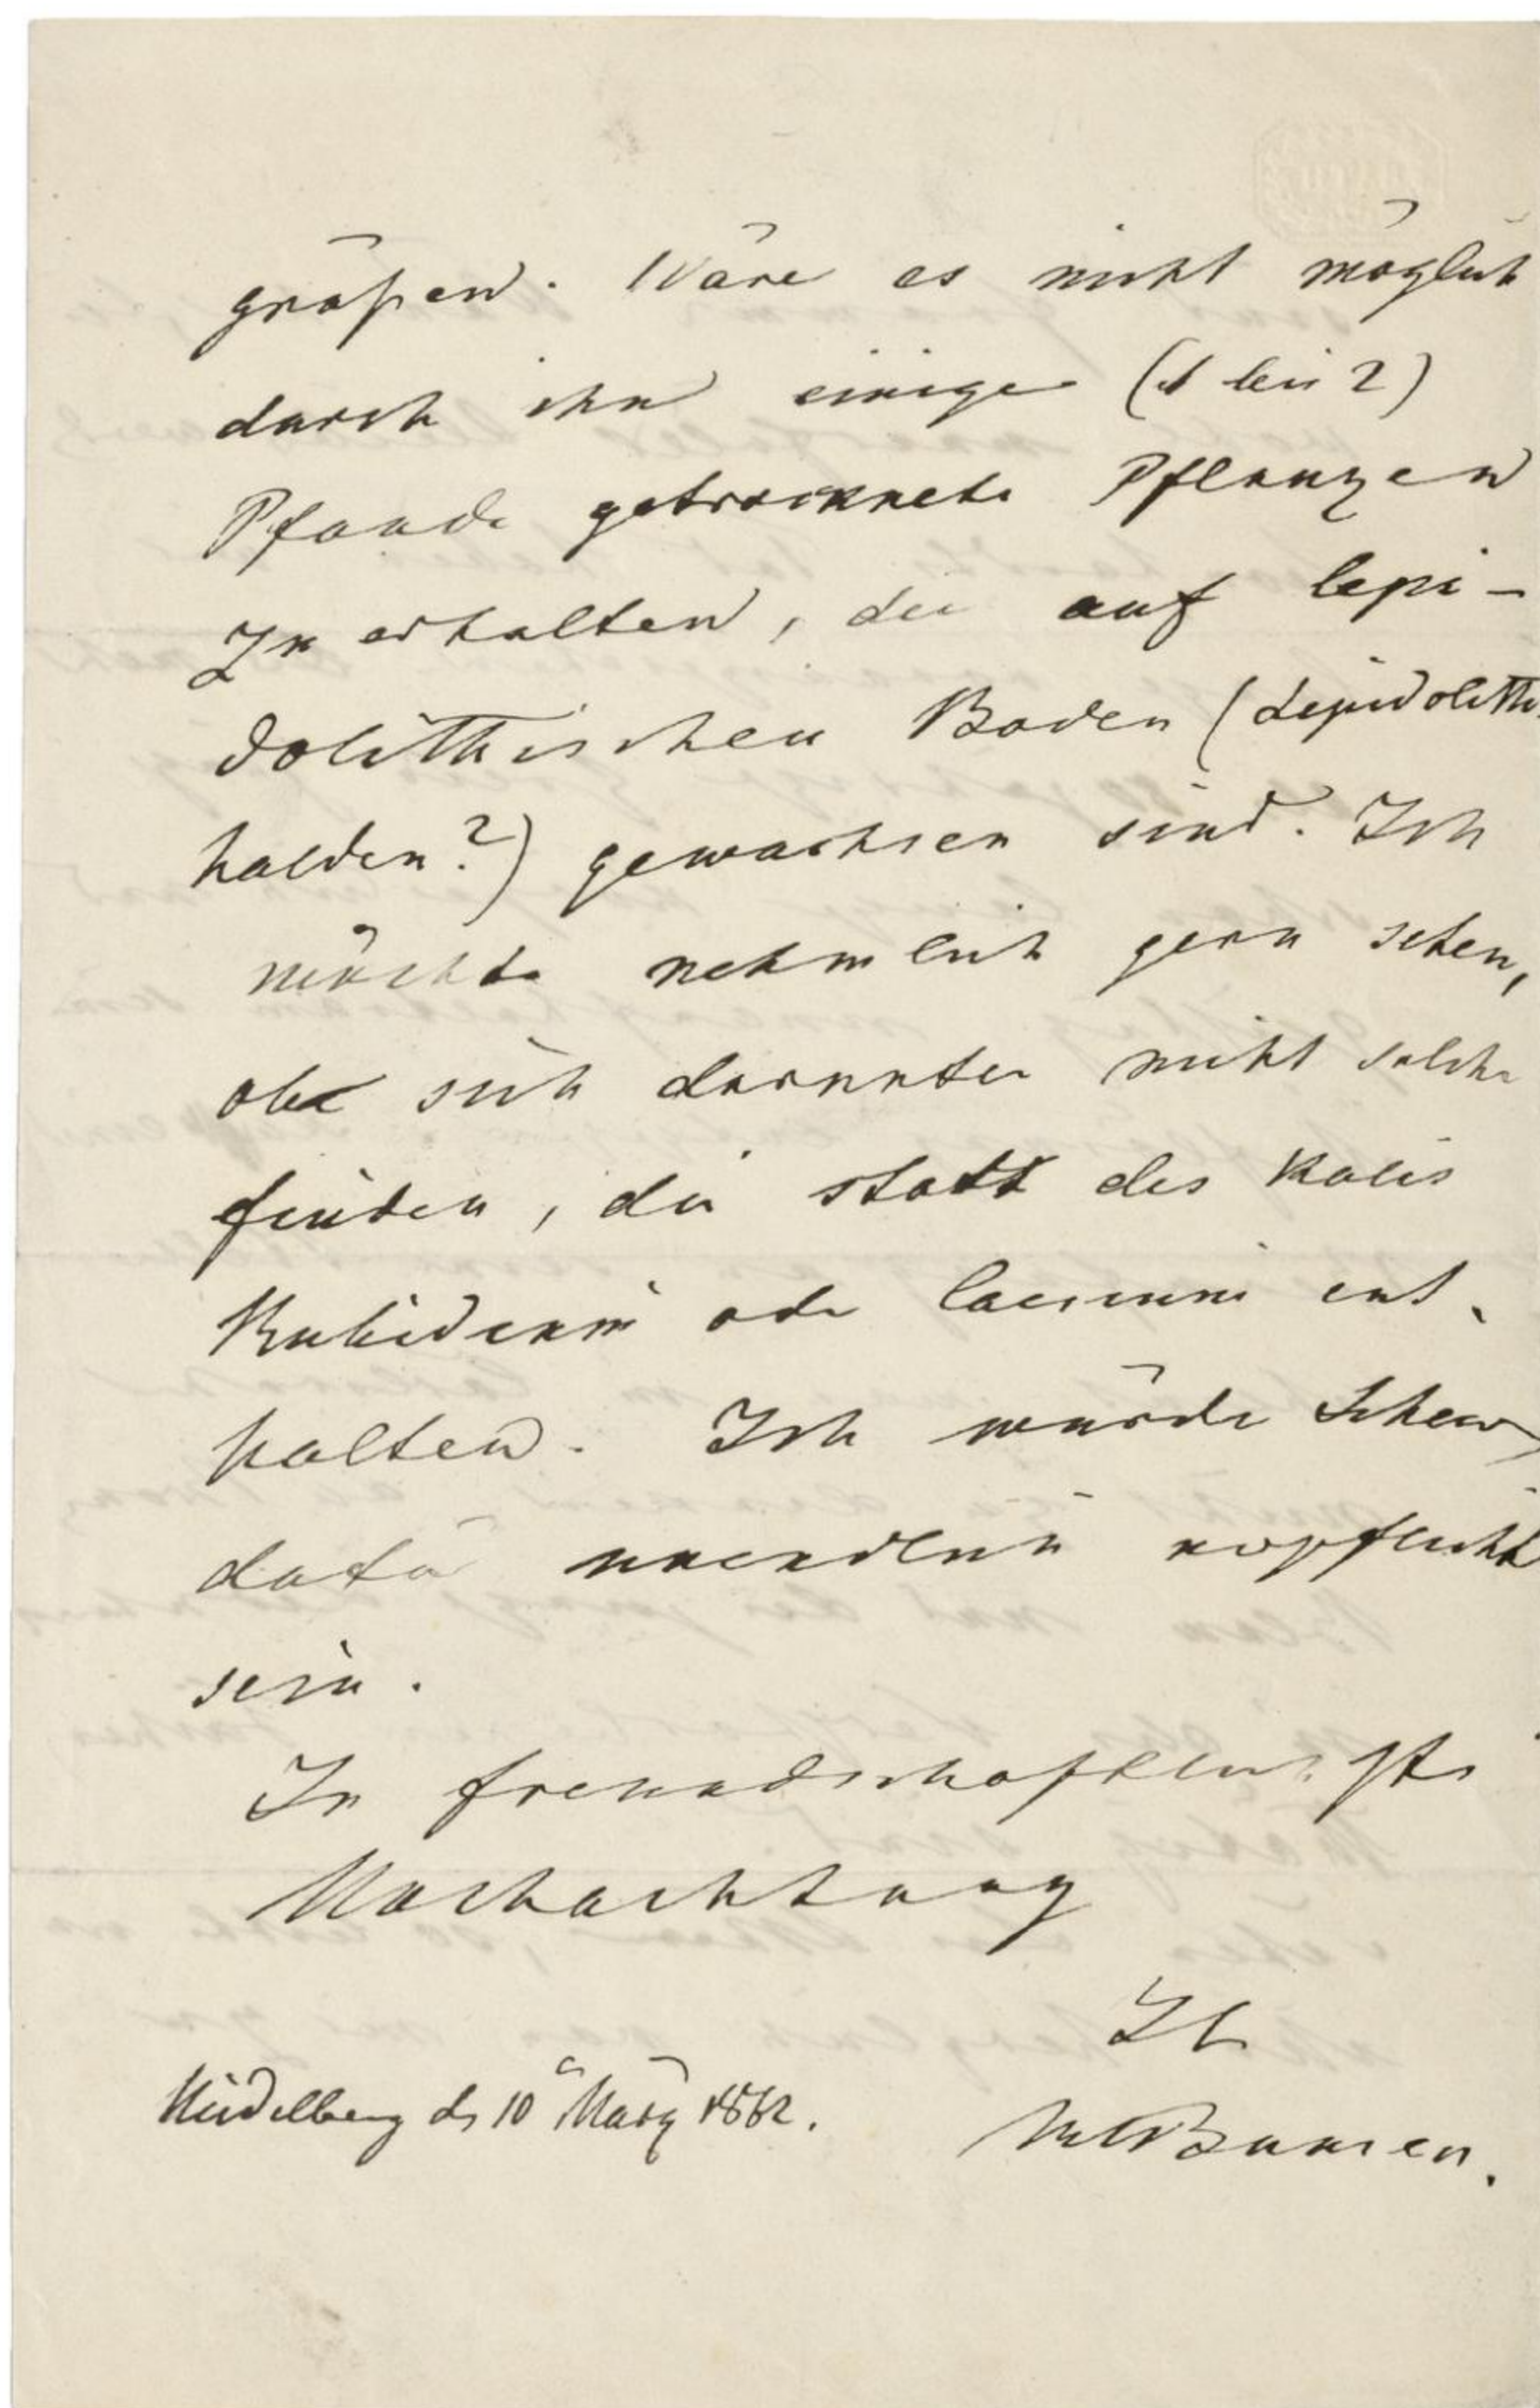 grüßen. Wäre es nicht möglich
durch ihn einige (1 bis 2)
Pfunde getrocknete Pflanzen
zu erhalten, die auf lepi-
dolithischen Boden (Lepidolith
halden?) gewachsen sind. Ich
möchte nehmlich gern sehen,
ob sich darunter nicht solche
finden, die statt des Kalis
Rubidium oder Caesium ent-
halten. Ich würde Ihnen
dafür unendlich verpflichtet
sein.
In freundschaftlichster
Hochachtung
Ihr
Heidelberg d. 10 März 1862.
RWBunsen.